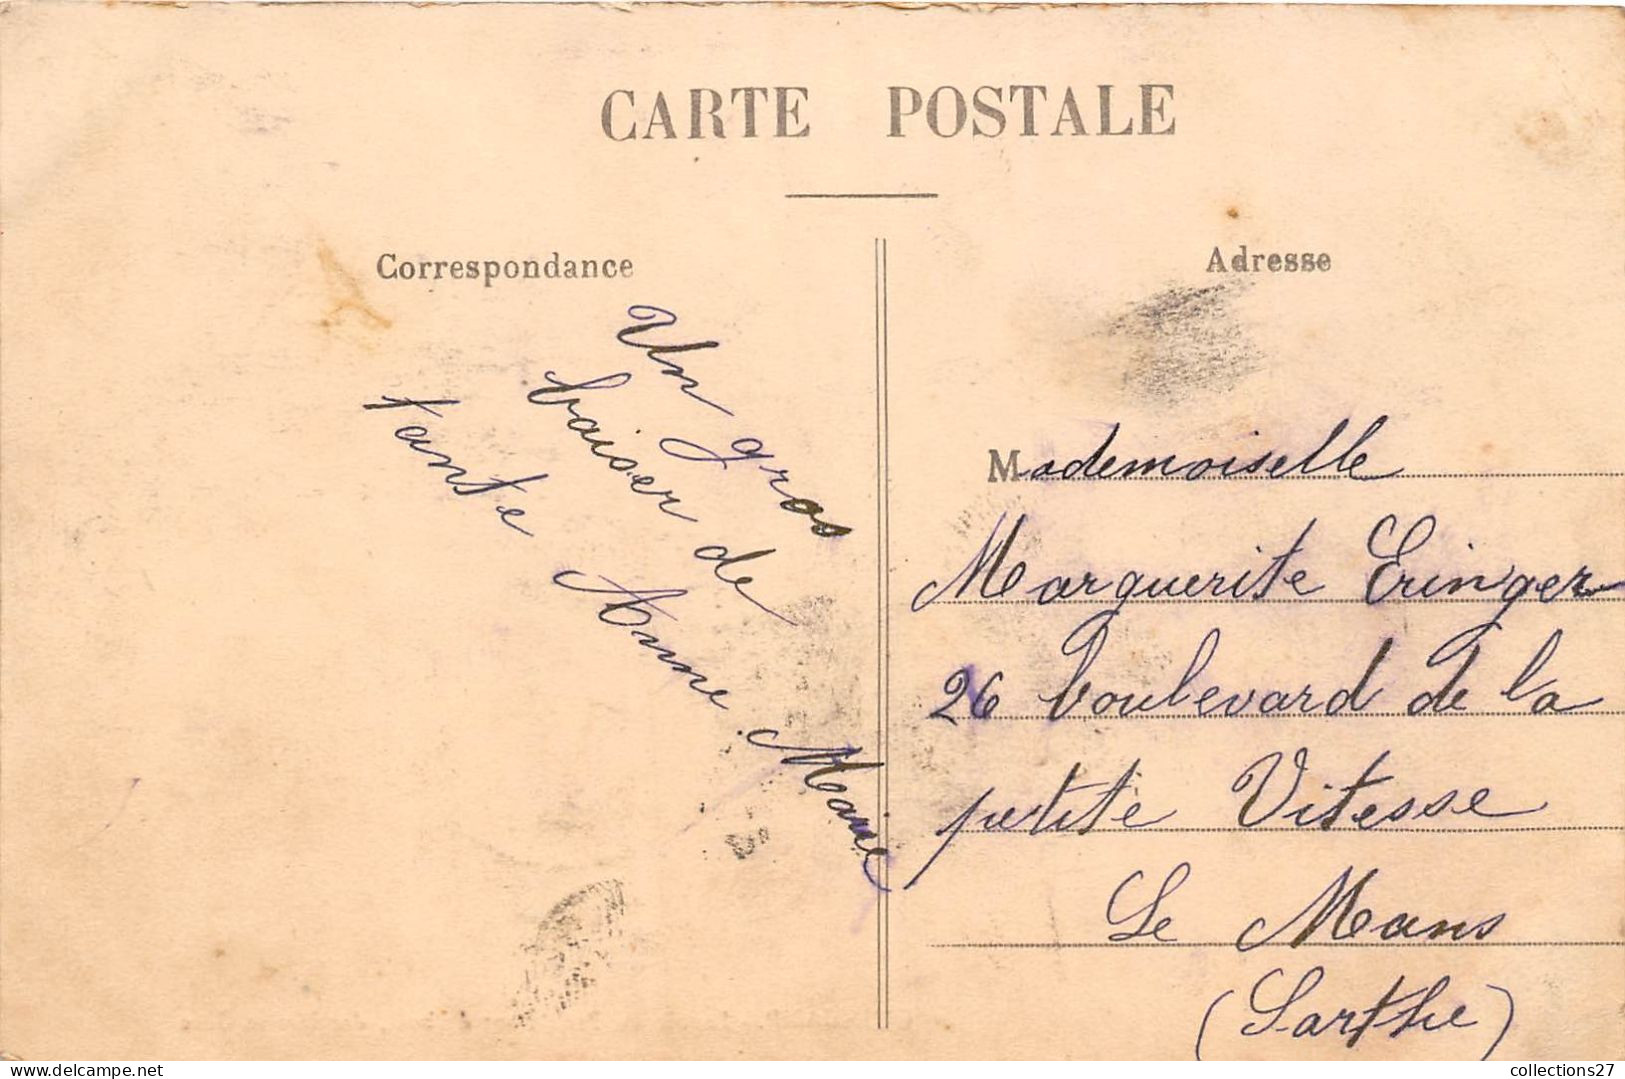 CARTE POSTALE
Correspondance
Un gros
baiser de
tante Anne Marie
Adresse
Mademoiselle
Marguerite Eringer
26 boulevard de la
petite Vitesse
Le Mans
(Sarthe)
collections27